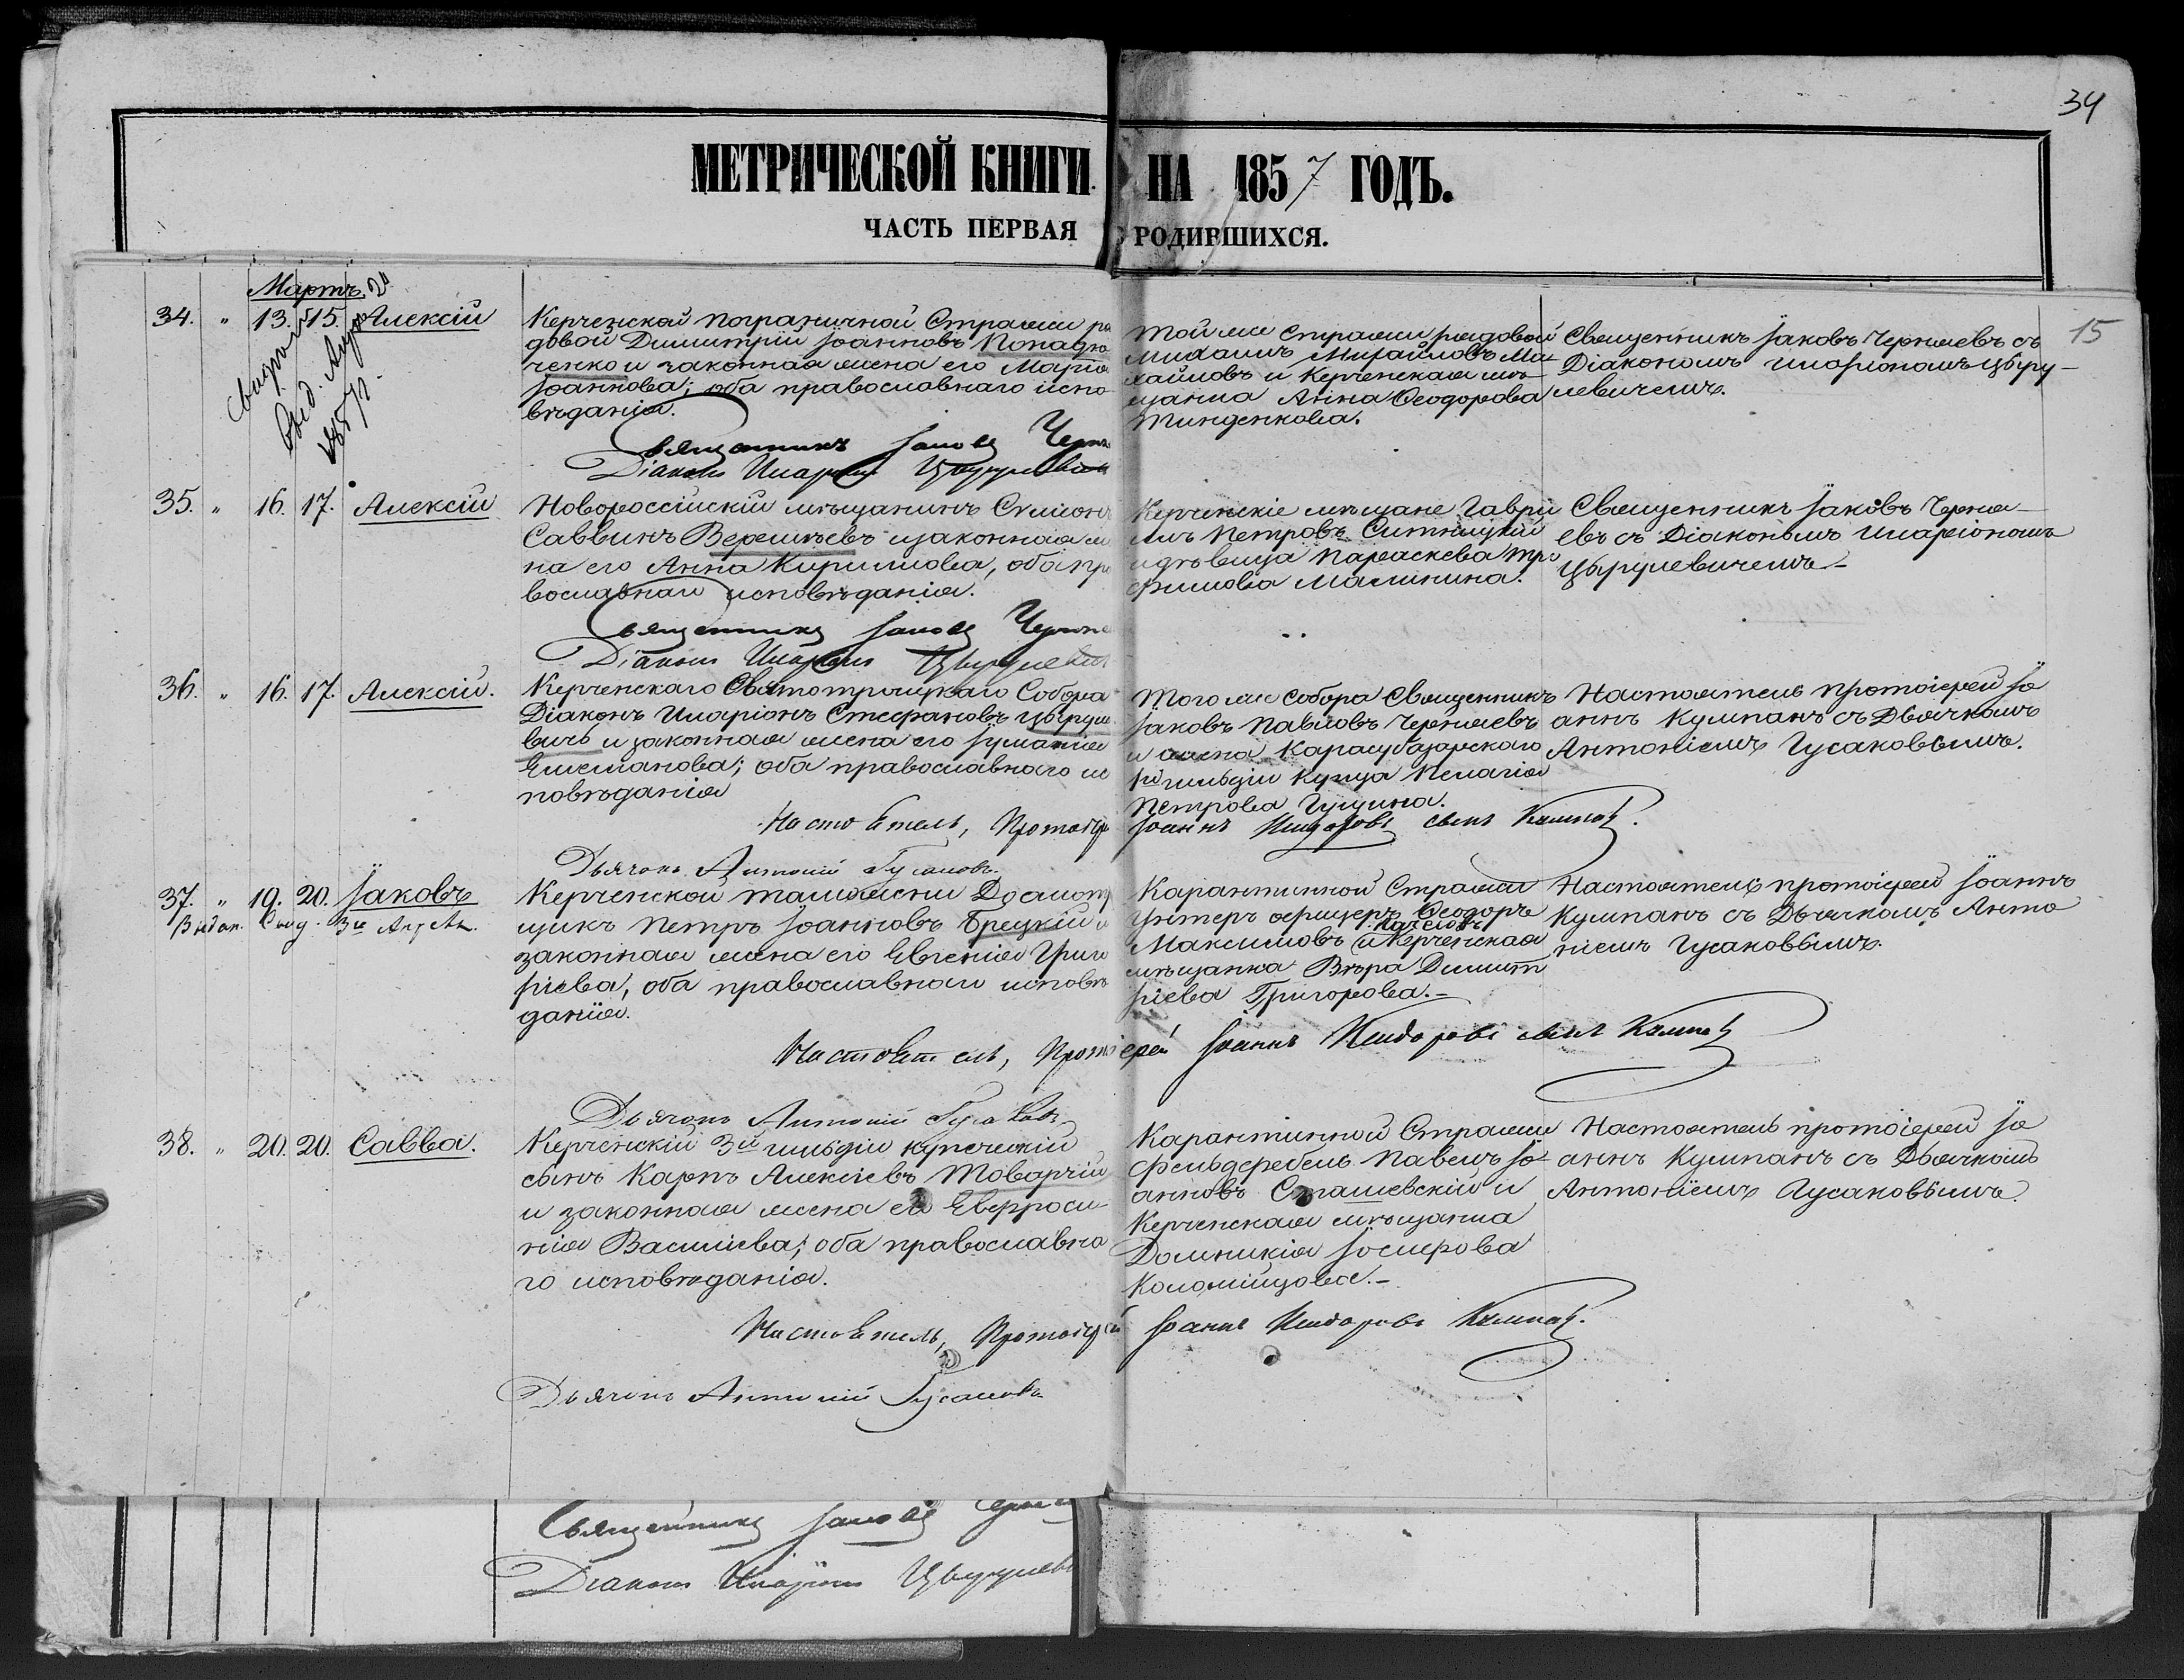 34
МЕТРИЧЕСКОЙ КНИГИ НА 1857 ГОДЪ.
ЧАСТЬ ПЕРВАЯ РОДИВШИХСЯ.
15
Мартъ.
34. " 13. 15. Алексій
1857 г.
Керченской пограничной Стражи ря
довой Димитрій Іоанновъ Попадю
ченко и законная жена его Марія
Іоаннова; оба православнаго испо
вѣданія.
Священникъ Іаковъ Черня
Діаконъ Иларіонъ Цырулевич
Той же стражи рядовой
Михаилъ Михайловъ Ми
хайловъ и Керченская мѣ
щанка Анна Ѳеодорова
Тинденкова.
Священникъ Іаковъ Черняевъ съ
Діакономъ Иларіономъ Цыру-
левичемъ.
35. " 16. 17. Алексій
Новороссійскій мѣщанинъ Сѵмеонъ
Саввинъ Верещьевъ и законная же
на его Анна Кириллова, оба пра
вославнаго исповѣданія.
Священникъ Іаковъ Черняе
Діаконъ Иларіонъ Цырулевич
Керченскіе мѣщане Гаври
илъ Петровъ Ситницкій
и дѣвица Параскева Тро
фимова Малинина.
Священникъ Іаковъ Черня-
евъ съ Діакономъ Иларіономъ
Цырулевичемъ
36. " 16. 17. Алексій.
Керченскаго Святотроицкаго Собора
Діаконъ Иларіонъ Стефановъ Цыруле
вичъ и законная жена его Іуліанія
Емельянова; оба православнаго ис
повѣданія
Настоятель, Протоіер
Дьячокъ Антоній Гусаковъ.
Того же собора Священникъ
Іаковъ Павловъ Черняевъ
и жена Карасубазарскаго
1й гильдіи купца Пелагія
Петрова Гущина.
Іоаннъ Исидоровъ сынъ Кумпан.
Настоятель протоіерей Іо
аннъ Кумпанъ съ Дьячкомъ
Антоніемъ Гусаковымъ.
37. " 19. 20. Іаковъ
Выдан. Свид. 3го Апрѣл.
Керченской таможни Досмотр
щикъ Петръ Іоанновъ Брецкій и
законная жена его Евгенія Григо
ріева, оба православнаго исповѣ
данія.
Настоятель, Протоіерей Іоаннъ Исидоровъ сынъ Кумпан
Дьячокъ Антоній Гусаковъ
Карантинной Стражи
унтеръ офицеръ Ѳеодоръ
Максимовъ и Керченская
мѣщанка Вѣра Димит
ріева Григорова.-
Настоятель протоіерей Іоаннъ
Кумпанъ съ Дьячкомъ Анто
ніемъ Гусаковымъ.
38. " 20. 20. Савва.
Керченскій 3й гильдіи купеческій
сынъ Карпъ Алексіевъ Товарчій
и законная жена его Евфроси
нія Васильева; оба православна
го исповѣданія.
Настоятель, Протоіерей Іоаннъ Исидоровъ Кумпан.
Дьячокъ Антоній Гусаковъ
Карантинной Стражи
фельдфебель Павелъ Іо
анновъ Сташевскій и
Керченская мѣщанка
Домникія Іосифова
Коломійцова.-
Настоятель протоіерей Іо
аннъ Кумпанъ съ Дьячкомъ
Антоніемъ Гусаковымъ.
Священникъ Іаковъ
Діаконъ Иларіонъ Цырулев